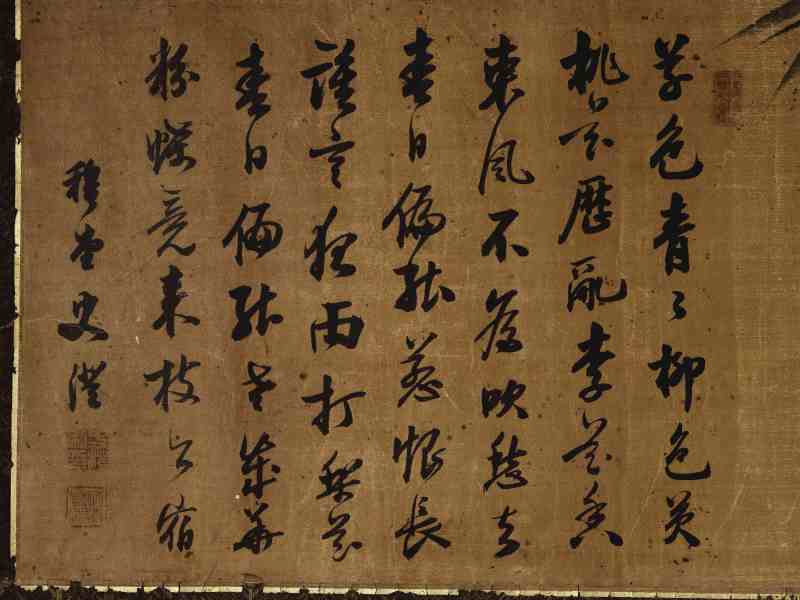 草色青〻柳色黃
桃花歷亂李花香
東風不為吹愁去
春日偏能惹恨長
誰言狂雨打梨花
春日偏能老歲華
粉蝶竟來枝上宿
穆堂史澧